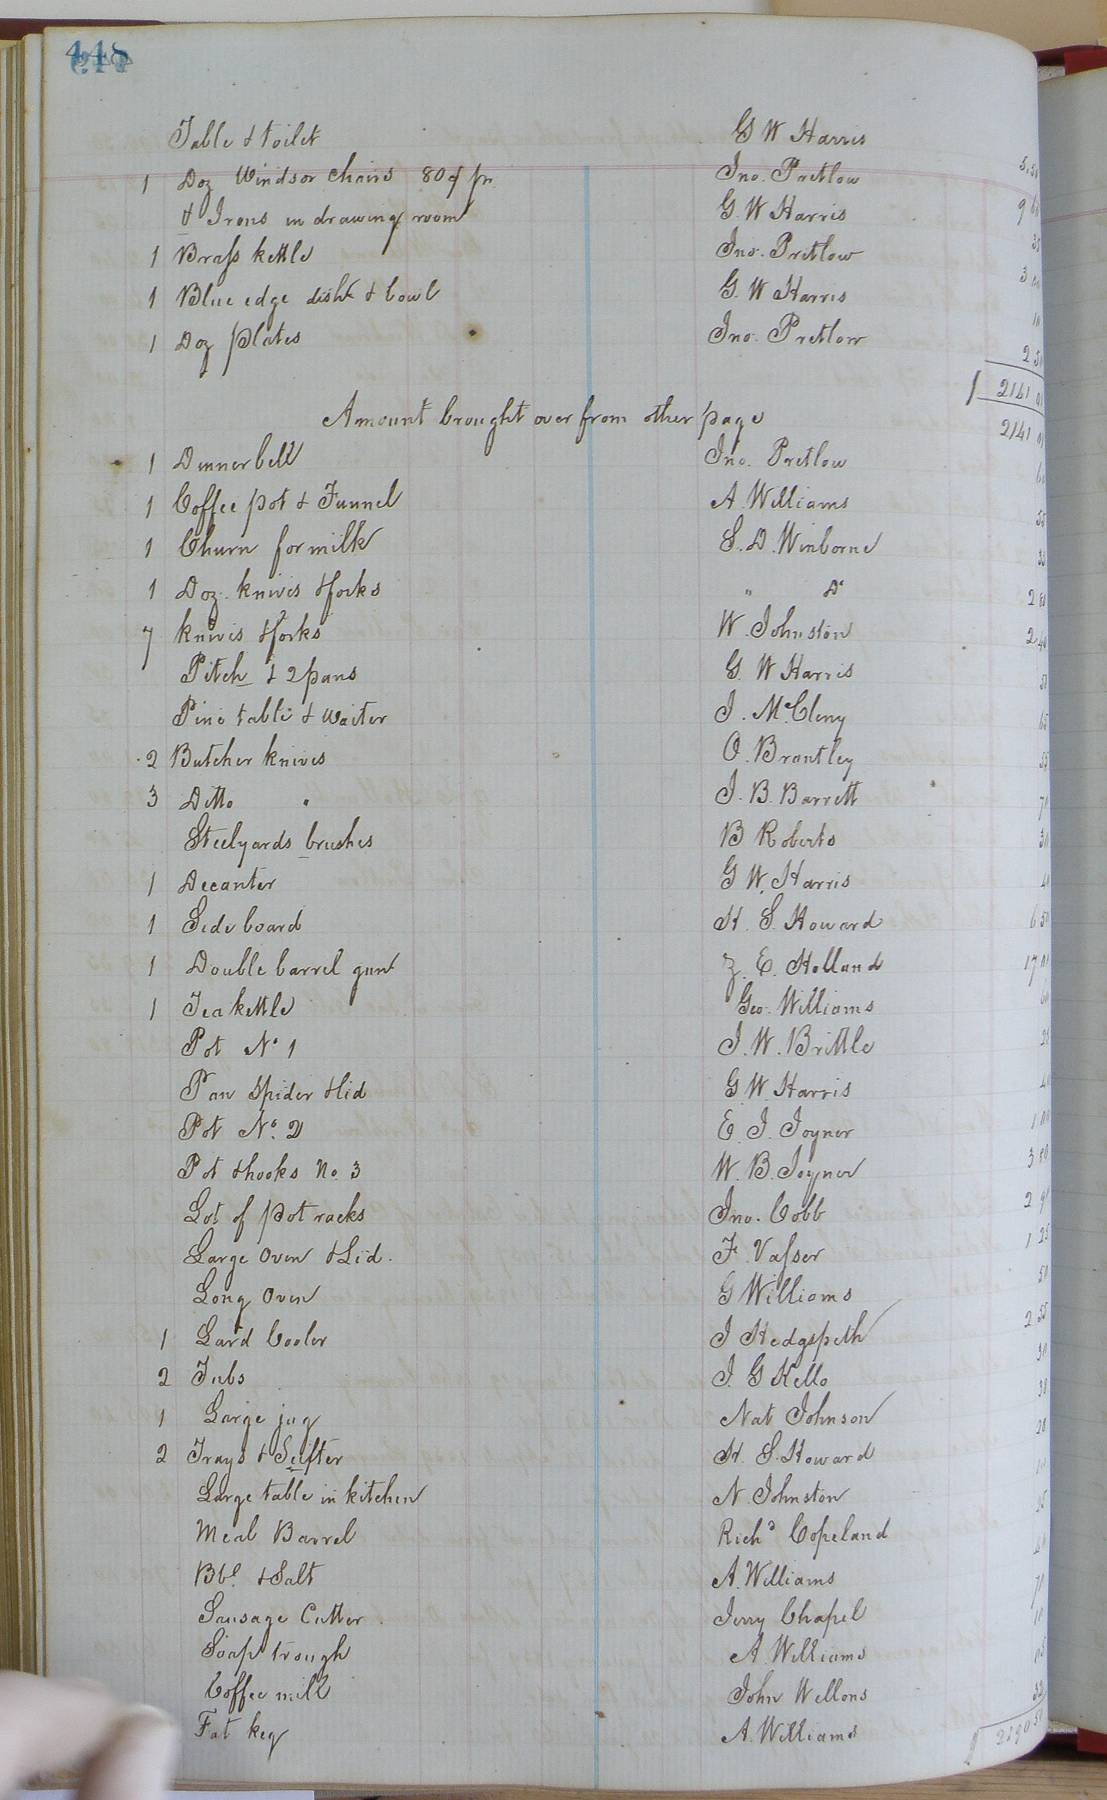 448
Table & toilet G W Harris 5.50
1 Doz Windsor Chairs 80¢ pr Jno. Pretlow 9 60
& Irons in drawing room G. W Harris 35
1 Brass kettle Jno. Pretlow 3.00
1 Blue edge dish & bowl G. W Harris 10
1 Doz plates Jno. Pretlow 2 50
2141 01
Amount brought over from other page 2141 01
1 Dinner bell Jno. Pretlow 60
1 Coffee pot & Funnel A. Williams 55
1 Churn for milk S. D. Winborne 35
1 Doz. knives & forks " Do 2 80
7 knives & forks W. Johnston 2.40
Pitch & 2 pans G. W Harris 50
Pine table & Waiter J. McCleny 65
2 Butcher knives O. Brantley 55
3 Ditto " J. B. Barrett 70
Steelyards brushes B Roberts 30
1 Decanter G W. Harris 40
1 Side board H. S. Howard 6 50
1 Double barrel gun Z. E. Holland 17 00
1 Tea kettle Geo. Williams 60
Pot No 1 J. W. Brittle 25
Pan Spider & lid G. W. Harris 40
Pot No. 2 E. J. Joyner 1 00
Pot & hooks No. 3 W. B. Joyner 3 80
Lot of pot racks Jno. Cobb 2 90
Large Oven & Lid. F. Vasser 1 25
Long Oven G Williams 50
1 Lard Cooler J Hedgspeth 2 55
2 Tubs J. G Kello 30
1 Large jug Nat Johnson 30
2 Trays & Seifter H. S. Howard 20
Large table in kitchen N. Johnston
Meal Barrel Richd Copeland
Bbl. & Salt A. Williams
Sausage Cutter. Jerry Chapel
Soap trough A. Williams
Coffee mill John Wellons
Fat keg A. Williams
2190 50